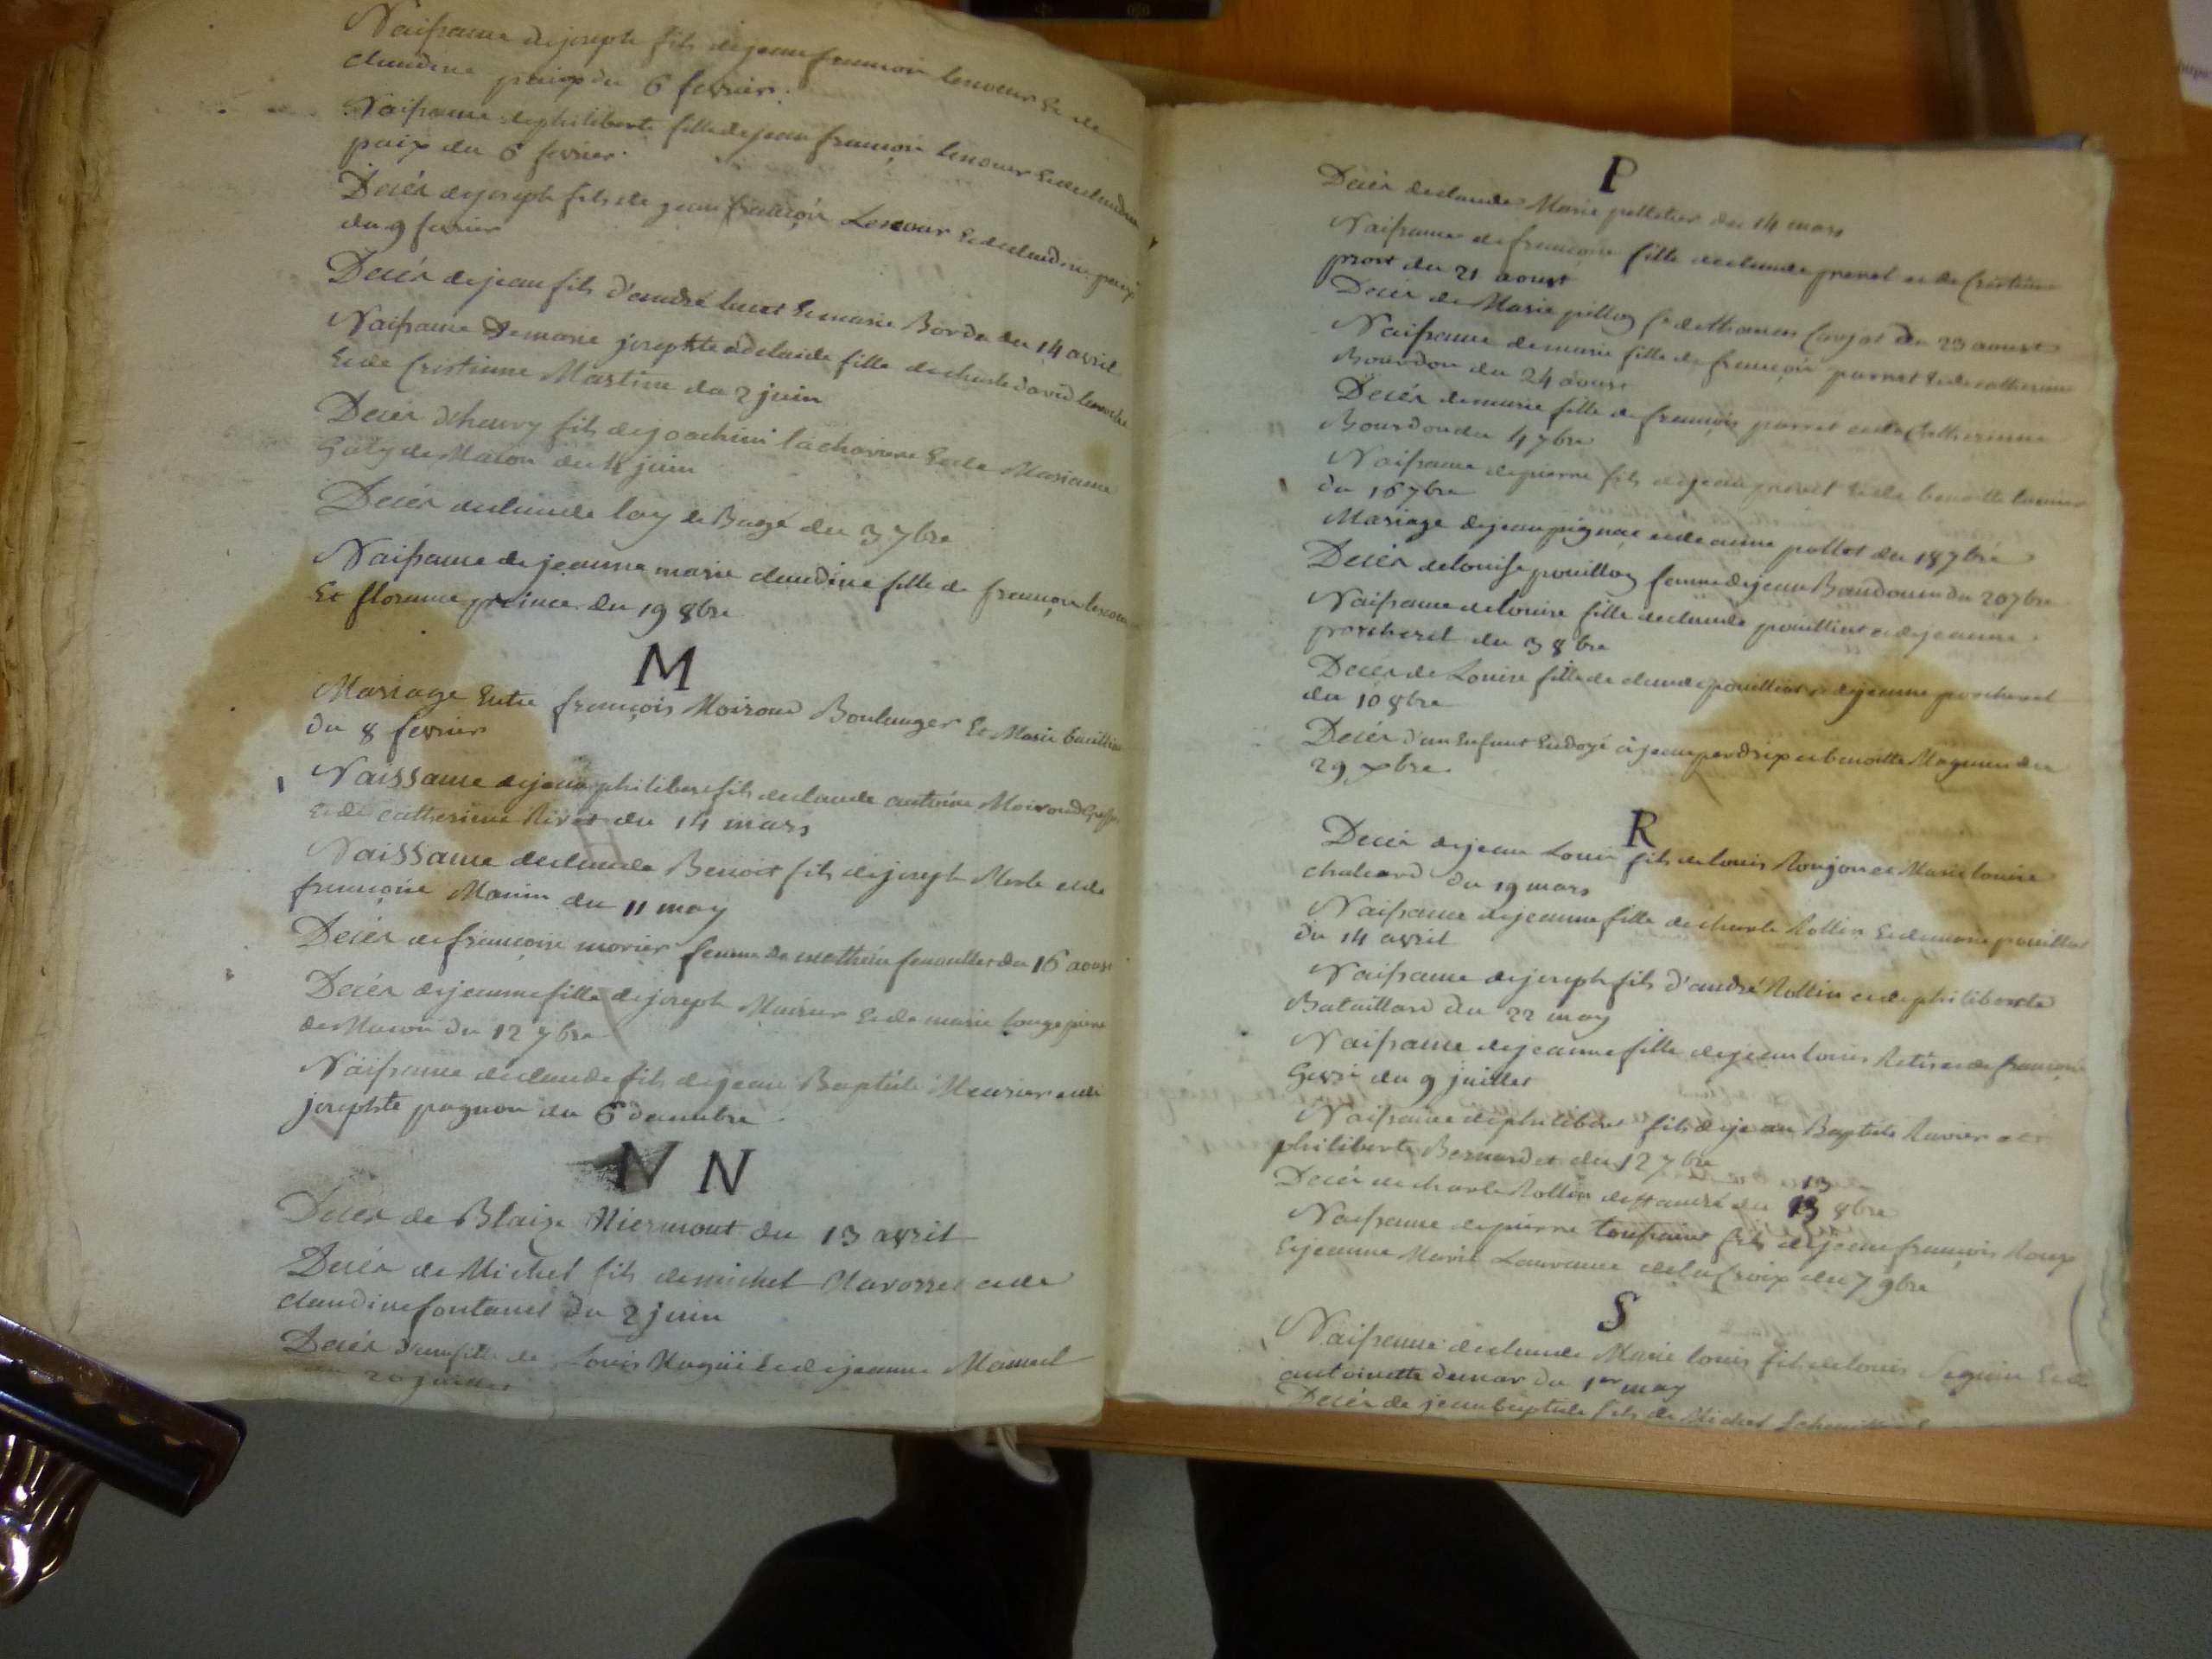 Naissance de joseph fils de jean françois lenoeur Et de
claudine paix du 6 fevrier.
Naissance de philiberte fille de jean françois lenoeur Et de claudine
paix du 6 fevrier.
Decés de joseph fils de jean françois Lenoeur Et de claudine paix
du 9 fevrier
Decés de jean fils d'andré lucet Et marie Borde du 14 avril
Naissance De marie josephte adelaide fille de charle david
Et de Cristinne Martine du 2 juin
Decés d'henry fils de joachim lachariere Et de Marianne
de Macon du juin
Decés de claude lay de Bagé du 3 7bre
Naissance de jeanne marie claudine fille de françois
Et florence prince du 19 8bre
M
Mariage Entre françois Moirond Boulanger Et Marie
du 8 fevrier
Naissance de jean philibert fils de claude antoine Moirond
Et de catherine Rivet du 14 mars
Naissance de claude Benoit fils de joseph Merle et de
françoise Manin du 11 may
Decés de françoise morier femme de mathieu du 16 aoust
Decés de jeanne fille de joseph Et de marie longepierre
de Macon du 12 7bre
Naissance de claude fils de jean Baptiste Meurier et de
josephte pagnon du 6 decembre
N N
Decés de Blaise Niermont du 13 avril
Decés de Michel fils de michel et de
claudine fontanel du 2 juin
Decés d'une fille de Louis Et de jeanne Mamel
P
Decés de claude Marie pelletier du 14 mars
Naissance de françoise fille de claude prevel et de Cristine
priost du 21 aoust
Decés de Marie pillon fe de thomas du 23 aoust
Naissance de marie fille de françois parret Et de catherine
Bourdon du 24 aoust
Decés de marie fille de françois parret et de Catherinne
Bourdon du 4 7bre
Naissance de pierre fils de jean Et de benoitte
du 16 7bre
Mariage de jean pignac et de anne pollet du 18 7bre
Decés de louise pouillon femme de jean Baudouin du 20 7bre
Naissance de louise fille de claude pouilliat et de jeanne
porcheret du 3 8bre
Decés de Louise fille de claude pouilliat et de jeanne porcheret
du 10 8bre
Decés d'un Enfant Endoyé à jean perdrix et benoitte Magnien du
29 xbre
R
Decés de jean Louis fils de louis Roujon et Marie louise
chaleard du 19 mars
Naissance de jeanne fille de charle Rollin Et de marie pouillat
du 14 avril
Naissance de joseph fils d'andré Rollin et de philiberte
Bataillard du 22 may
Naissance de jeanne fille de jean louis et de françoise
Gevri du 9 juillet
Naissance de philibert fils de jean Baptiste Ravier et
philiberte Bernardet du 12 7bre
Decés de charle Rollin de st andré du 13 8bre
Naissance de pierre toussaint fils de jean françois Roux
Et jeanne Marie Laurance delacroix du 7 9bre
S
Naissance de claude Marie louis fils de louis Seguin Et de
antoinette Demar du 1er may
Decés de jean baptiste fils de Michel